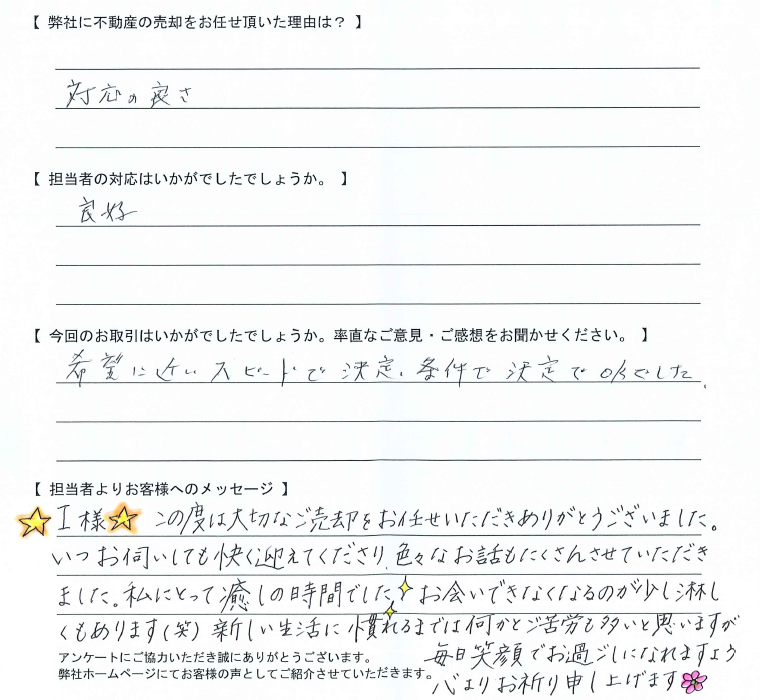 【 弊社に不動産の売却をお任せ頂いた理由は？ 】
対応の良さ
【 担当者の対応はいかがでしたでしょうか。 】
良好
【 今回のお取引はいかがでしたでしょうか。率直なご意見・ご感想をお聞かせください。 】
希望に近いスピードで決定、条件で決定でOKでした。
【 担当者よりお客様へのメッセージ 】
I様 この度は大切なご売却をお任せいただきありがとうございました。
いつお伺いしても快く迎えてくださり、色々なお話もたくさんさせていただき
ました。私にとって癒しの時間でした お会いできなくなるのが少し淋し
くもあります(笑) 新しい生活に慣れるまでは何かとご苦労も多いと思いますが
毎日笑顔でお過ごしになれますよう
心よりお祈り申し上げます
アンケートにご協力いただき誠にありがとうございます。
弊社ホームページにてお客様の声としてご紹介させていただきます。